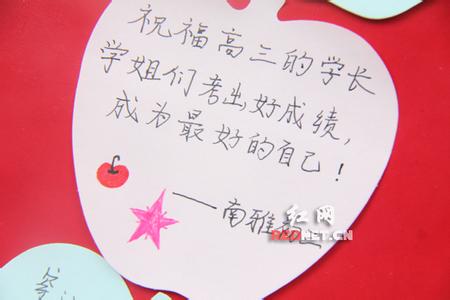 祝福高三的学长
学姐们考出好成绩,
成为最好的自己!
——南雅
红网
REDNET.CN